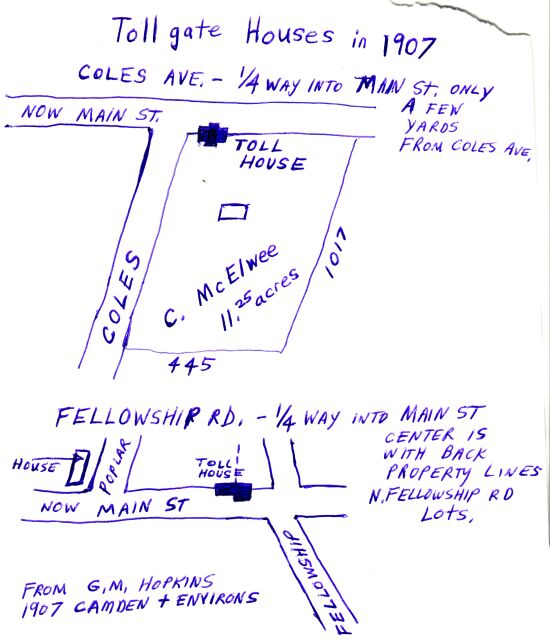 Toll gate Houses in 1907
COLES AVE. - 1/4 WAY INTO MAIN ST. ONLY
A FEW
YARDS
FROM COLES AVE.
NOW MAIN ST.
TOLL
HOUSE
COLES
C. McElwee
11.25 acres
1017
445
FELLOWSHIP RD. - 1/4 WAY INTO MAIN ST
CENTER IS
WITH BACK
PROPERTY LINES
N. FELLOWSHIP RD
LOTS.
HOUSE
POPLAR
TOLL
HOUSE
NOW MAIN ST
FELLOWSHIP
FROM G.M. HOPKINS
1907 CAMDEN + ENVIRONS